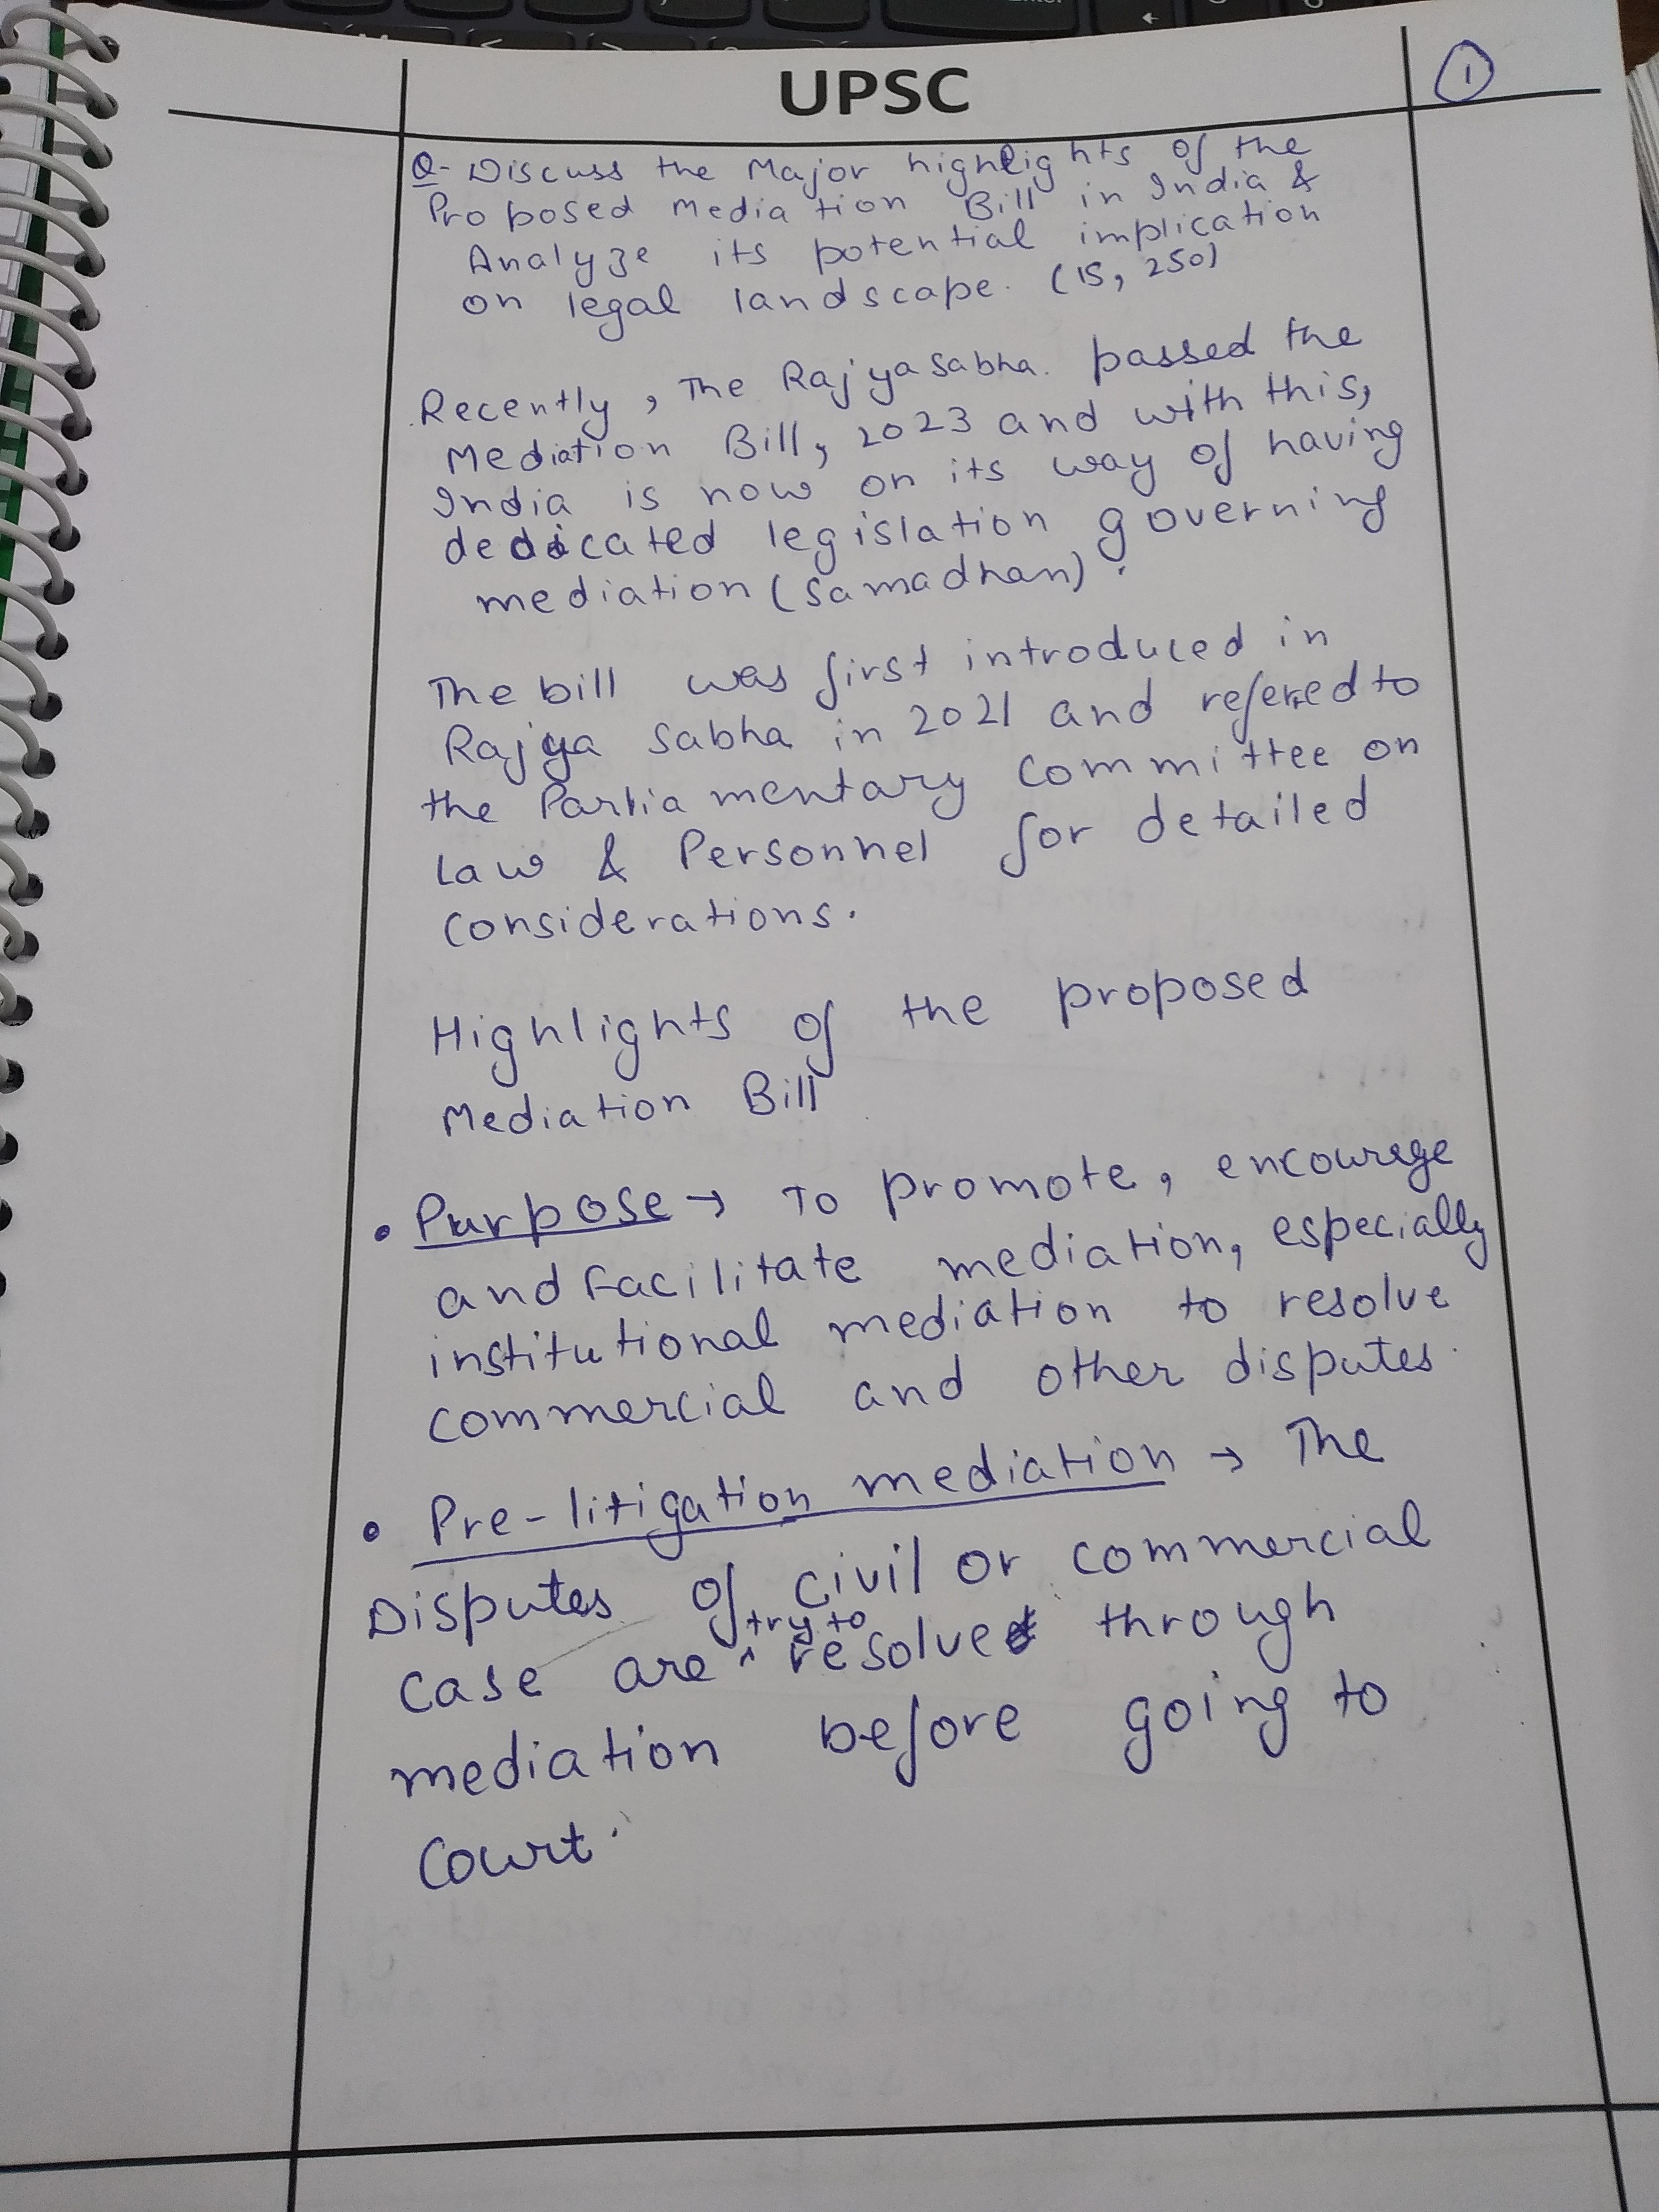 UPSC
1
Q- Discuss the Major highlights of the
Proposed Mediation Bill in India &
Analyze its potential implication
on legal landscape. (15, 250)
Recently, The Rajya Sabha. passed the
Mediation Bill, 2023 and with this,
India is now on its way of having
dedicated legislation governing
mediation (Samadhan).
The bill was first introduced in
Rajya Sabha in 2021 and refered to
the Parliamentary committee on
Law & Personnel for detailed
considerations.
Highlights of the proposed
Mediation Bill
• Purpose → To promote, encourage
and facilitate mediation, especially
institutional mediation to resolve
commercial and other disputes.
• Pre-litigation mediation → The
Disputes of civil or commercial
case are try to resolve through
mediation before going to
court.